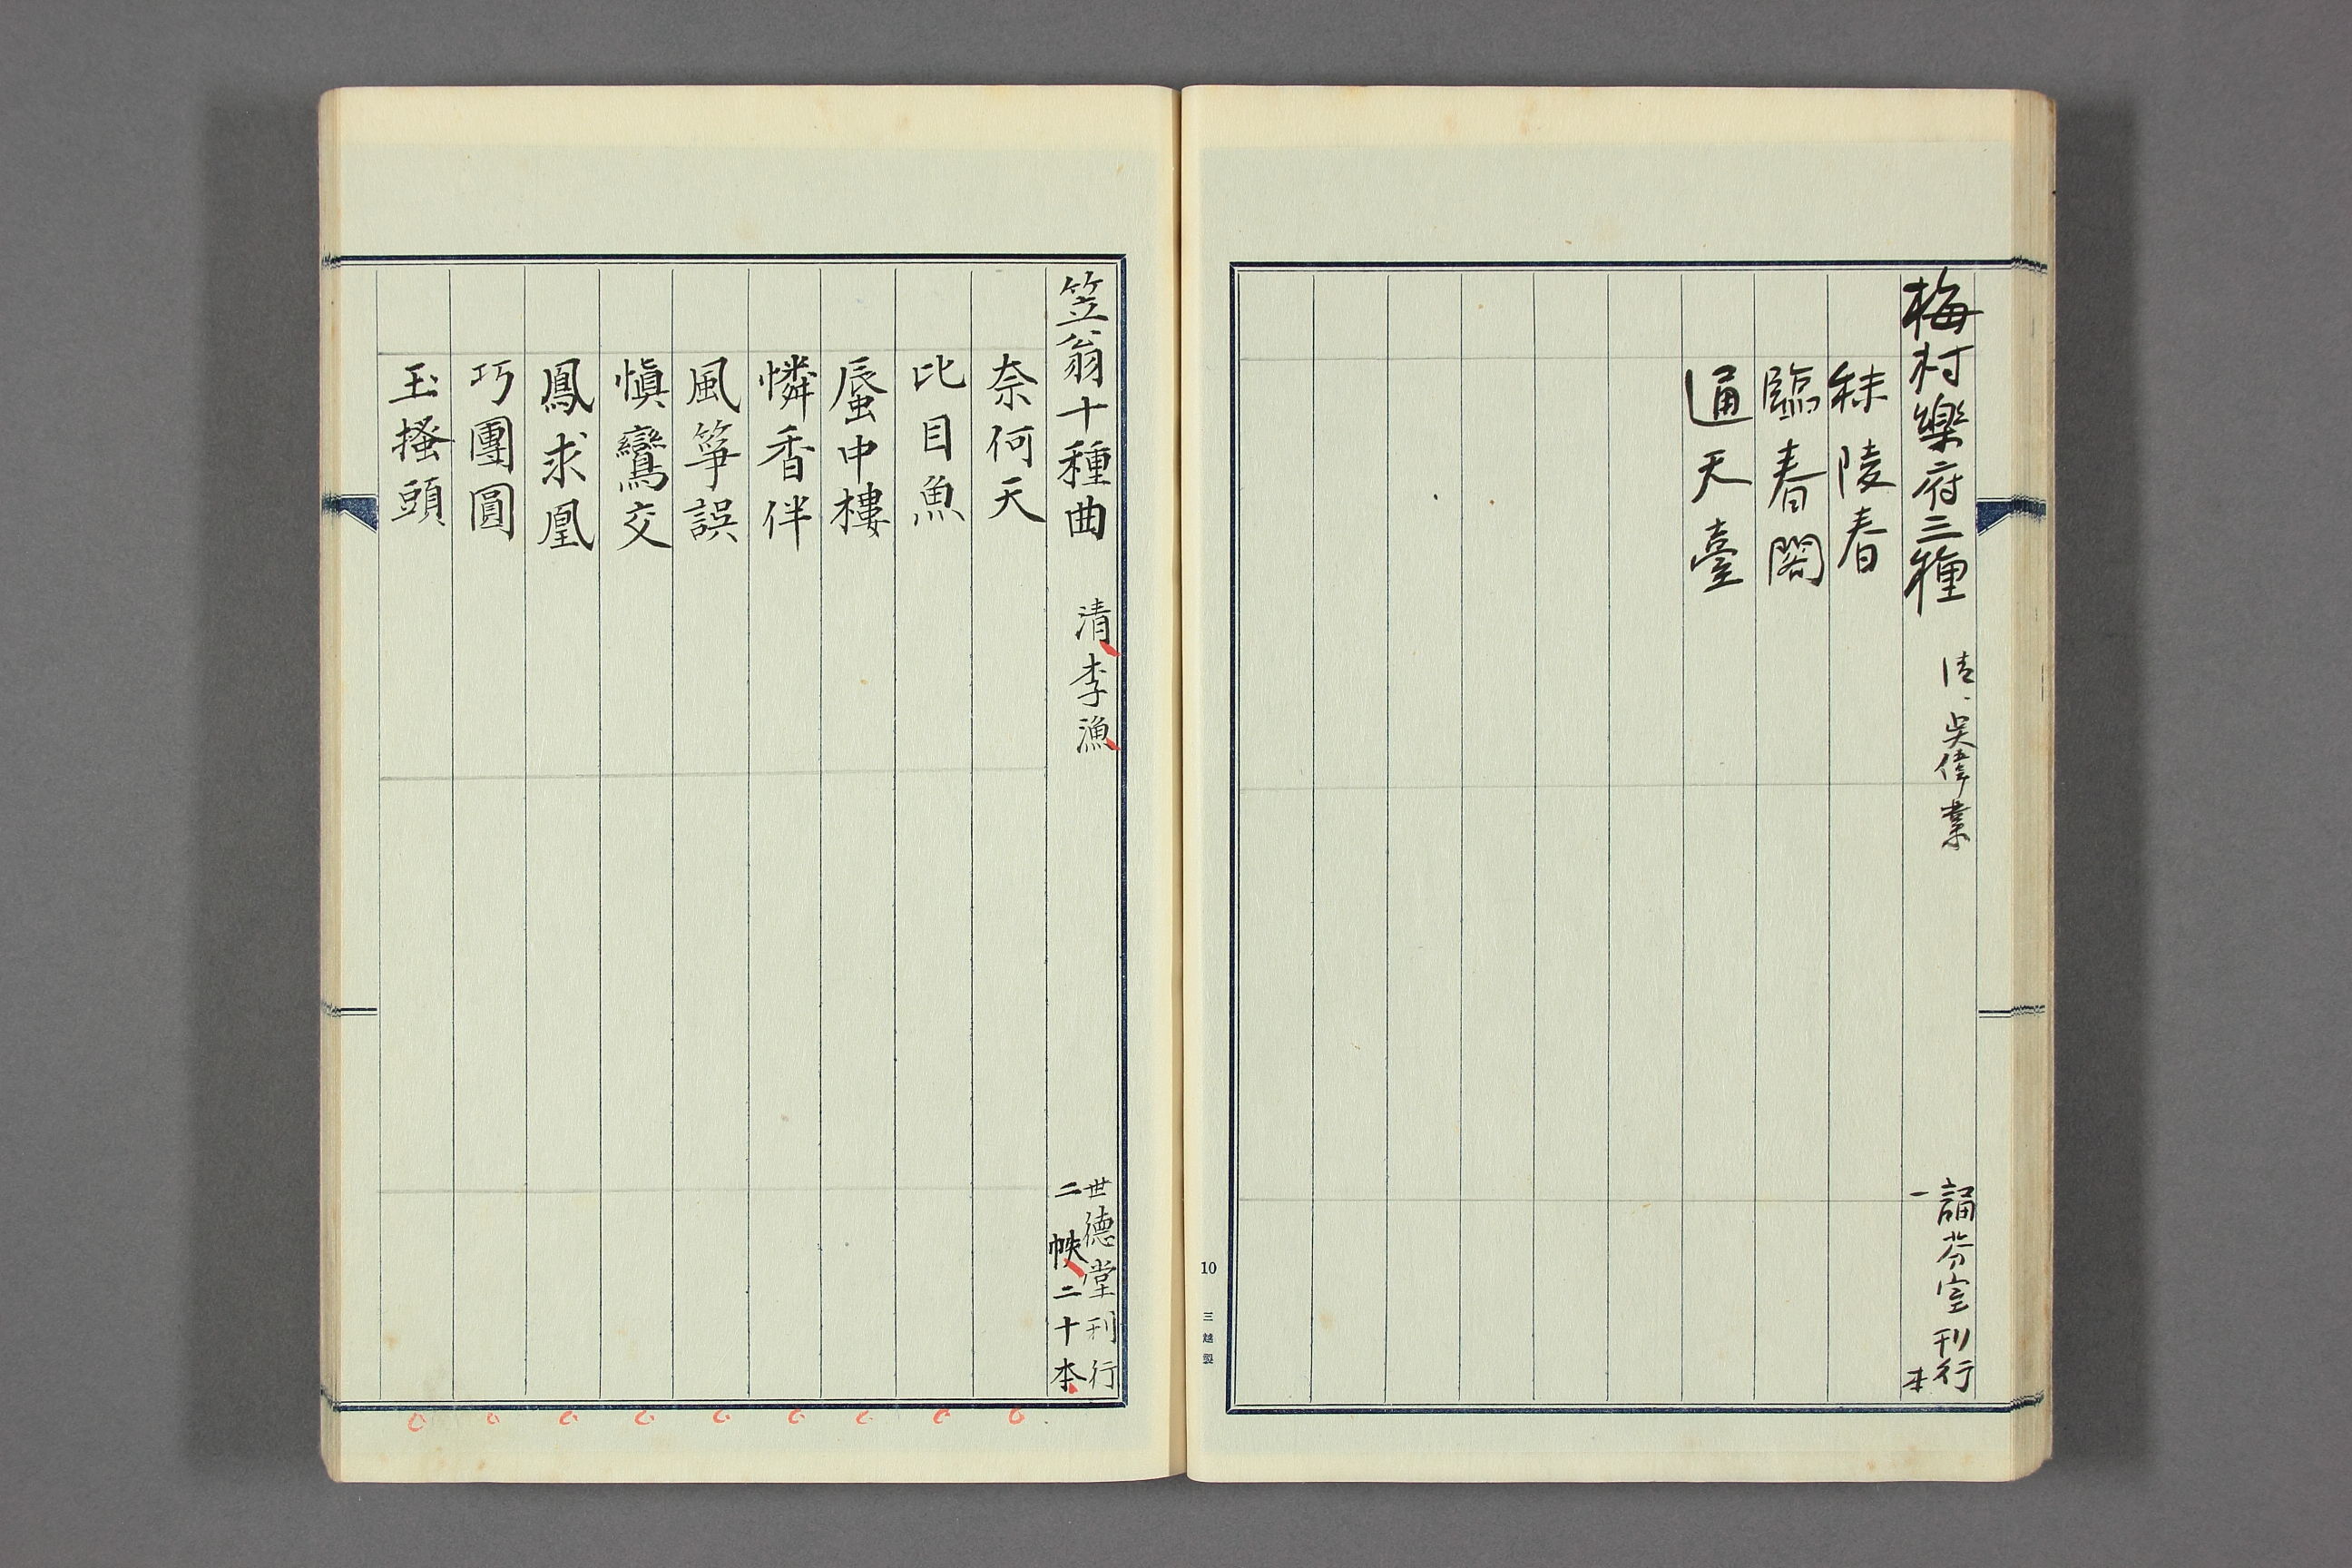 梅村樂府三種 清、吳偉業 誦芬室刊行 一本
秣陵春
臨春閣
通天臺
10 三越製
笠翁十種曲 清、李漁 世德堂刊行 二帙二十本
奈何天
比目魚
蜃中樓
憐香伴
風箏誤
慎鸞交
鳳求凰
巧團圓
玉搔頭